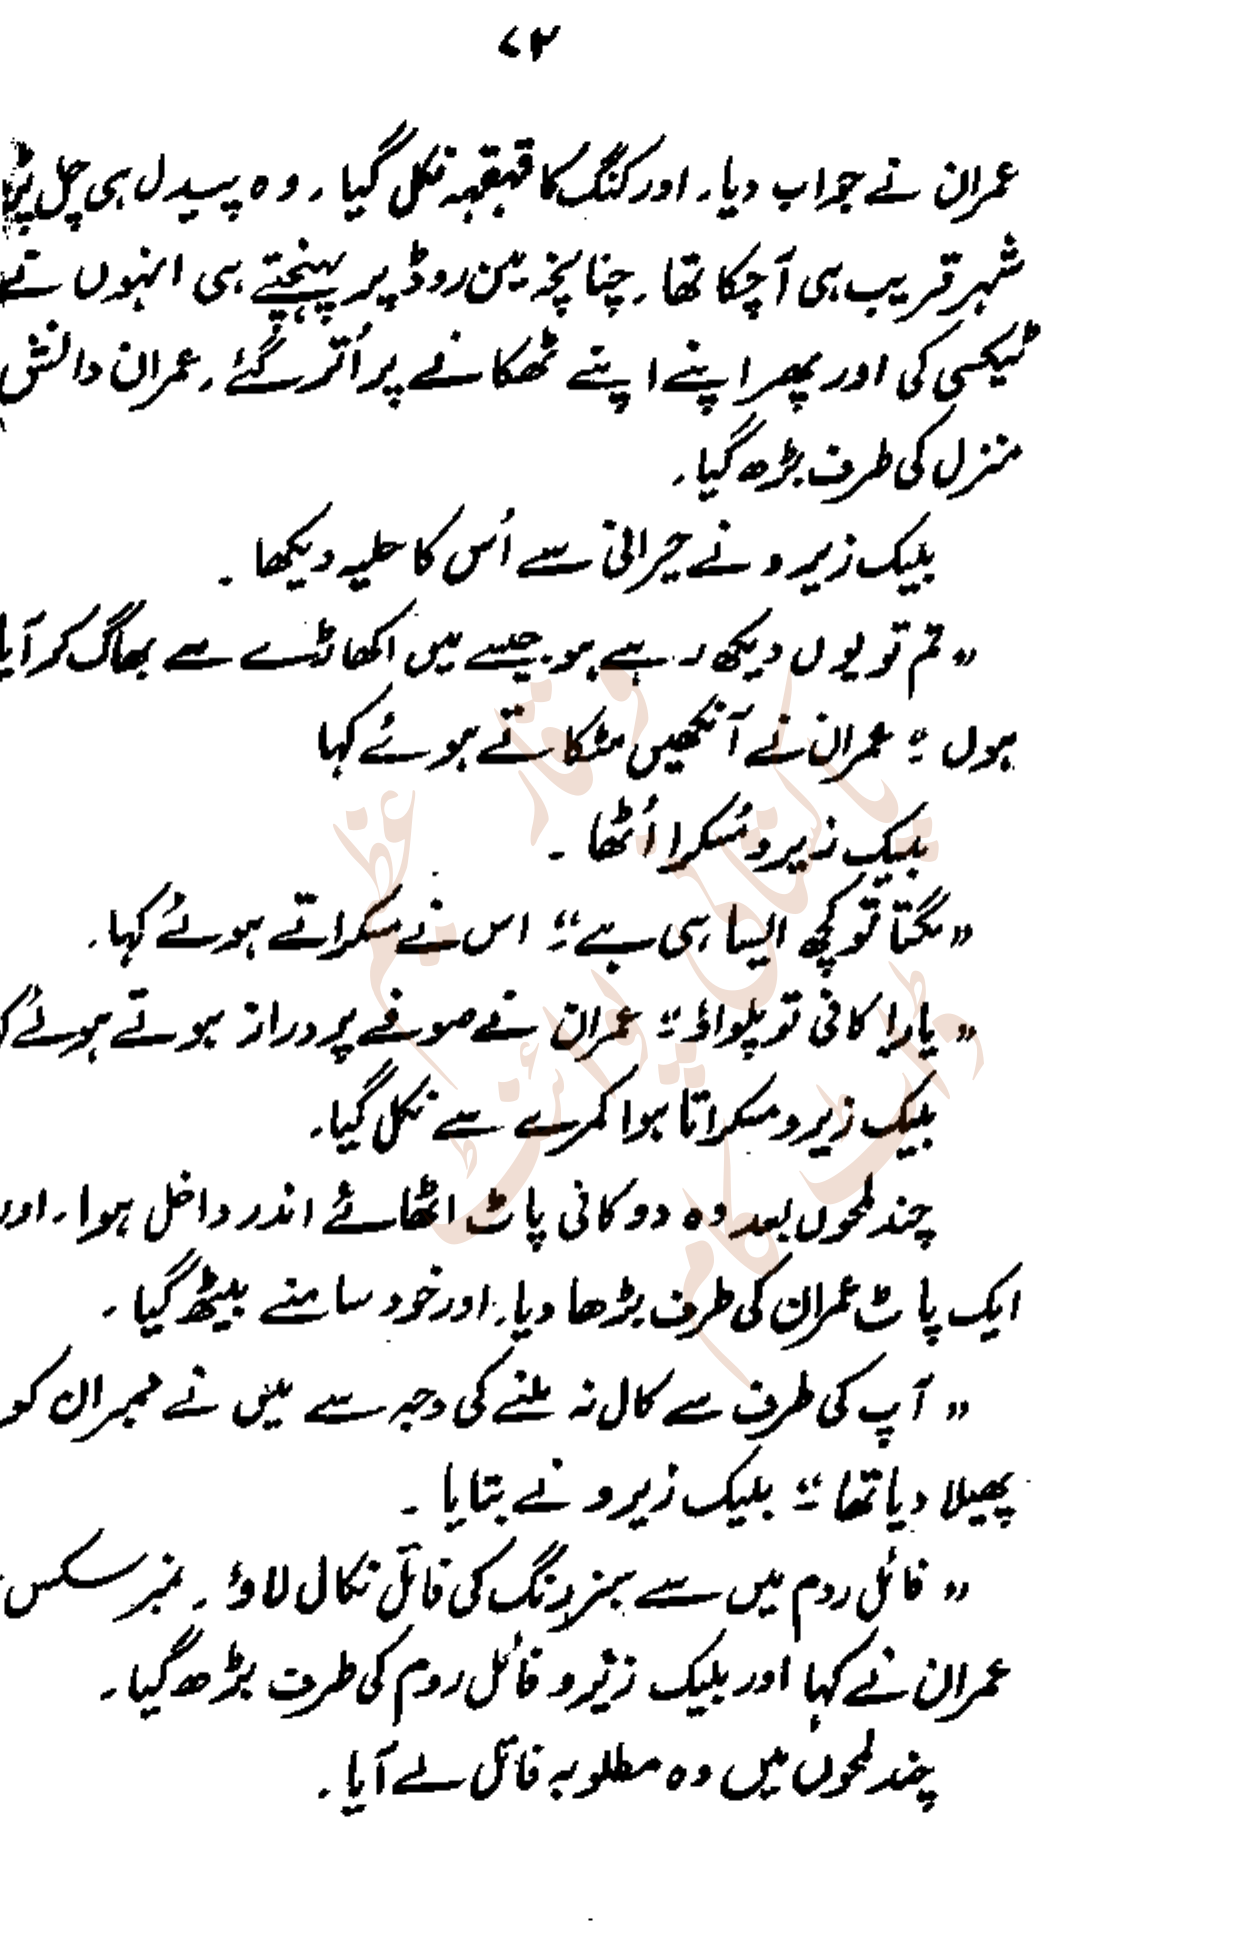 ۷۲
عمران نے جواب دیا۔ اور کنگ کا قہقہہ نکل گیا۔ وہ پیدل ہی چل پڑے
شہر قریب ہی آچکا تھا۔ چنانچہ مین روڈ پر پہنچتے ہی انہوں نے
ٹیکسی کی اور پھر اپنے اپنے ٹھکانے پر اُتر گئے۔ عمران دانش
منزل کی طرف بڑھ گیا۔
بلیک زیرو نے حیرانی سے اُس کا حلیہ دیکھا۔
” تم تو یوں دیکھ رہے ہو۔ جیسے میں اکھاڑے سے بھاگ کر آیا
ہوں “؛ عمران نے آنکھیں مٹکاتے ہوئے کہا
بلیک زیرو مُسکرا اُٹھا۔
” لگتا تو کچھ ایسا ہی ہے “؛ اس نے مسکراتے ہوئے کہا۔
” یارا کافی تو پلواؤ “؛ عمران نے صوفے پر دراز ہوتے ہوئے
بلیک زیرو مسکراتا ہوا کمرے سے نکل گیا۔
چند لمحوں بعد وہ دو کافی پاٹ اٹھائے اندر داخل ہوا۔ اور
ایک پاٹ عمران کی طرف بڑھا دیا۔ اور خود سامنے بیٹھ گیا۔
” آپ کی طرف سے کال نہ ملنے کی وجہ سے میں نے ممبران کو
پھیلا دیا تھا “؛ بلیک زیرو نے بتایا۔
” فائل روم میں سے ہنزدنگ کی فائل نکال لاؤ۔ نمبر سکس
عمران نے کہا اور بلیک زیرو فائل روم کی طرف بڑھ گیا۔
چند لمحوں میں وہ مطلوبہ فائل لے آیا۔
پاکستانی پوائنٹ
وقار عظیم
ڈاٹ کام